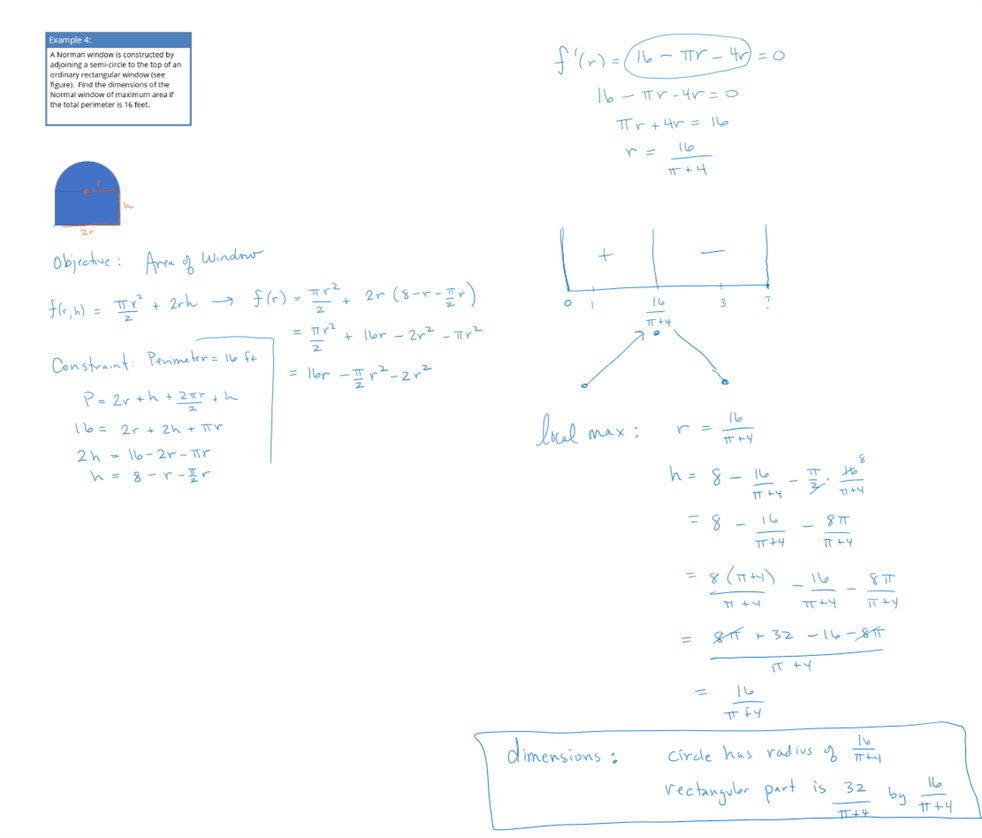 Example 4:
A Norman window is constructed by
adjoining a semi-circle to the top of an
ordinary rectangular window (see
figure). Find the dimensions of the
Normal window of maximum area if
the total perimeter is 16 feet.
r
h
2r
Objective: Area of Window
f(r,h) = πr²/2 + 2rh → f(r) = πr²/2 + 2r (8-r-π/2 r)
= πr²/2 + 16r - 2r² - πr²
= 16r - π/2 r² - 2r²
Constraint: Perimeter = 16 ft
P = 2r + h + 2πr/2 + h
16 = 2r + 2h + πr
2h = 16 - 2r - πr
h = 8 - r - π/2 r
f'(r) = 16 - πr - 4r = 0
16 - πr - 4r = 0
πr + 4r = 16
r = 16/(π+4)
+ −
0 1 16/(π+4) 3 ?
local max: r = 16/(π+4)
h = 8 - 16/(π+4) - π/2 · 16/(π+4) 8
= 8 - 16/(π+4) - 8π/(π+4)
= 8(π+4)/(π+4) - 16/(π+4) - 8π/(π+4)
= (8π + 32 - 16 - 8π)/(π+4)
= 16/(π+4)
dimensions: circle has radius of 16/(π+4)
rectangular part is 32/(π+4) by 16/(π+4)